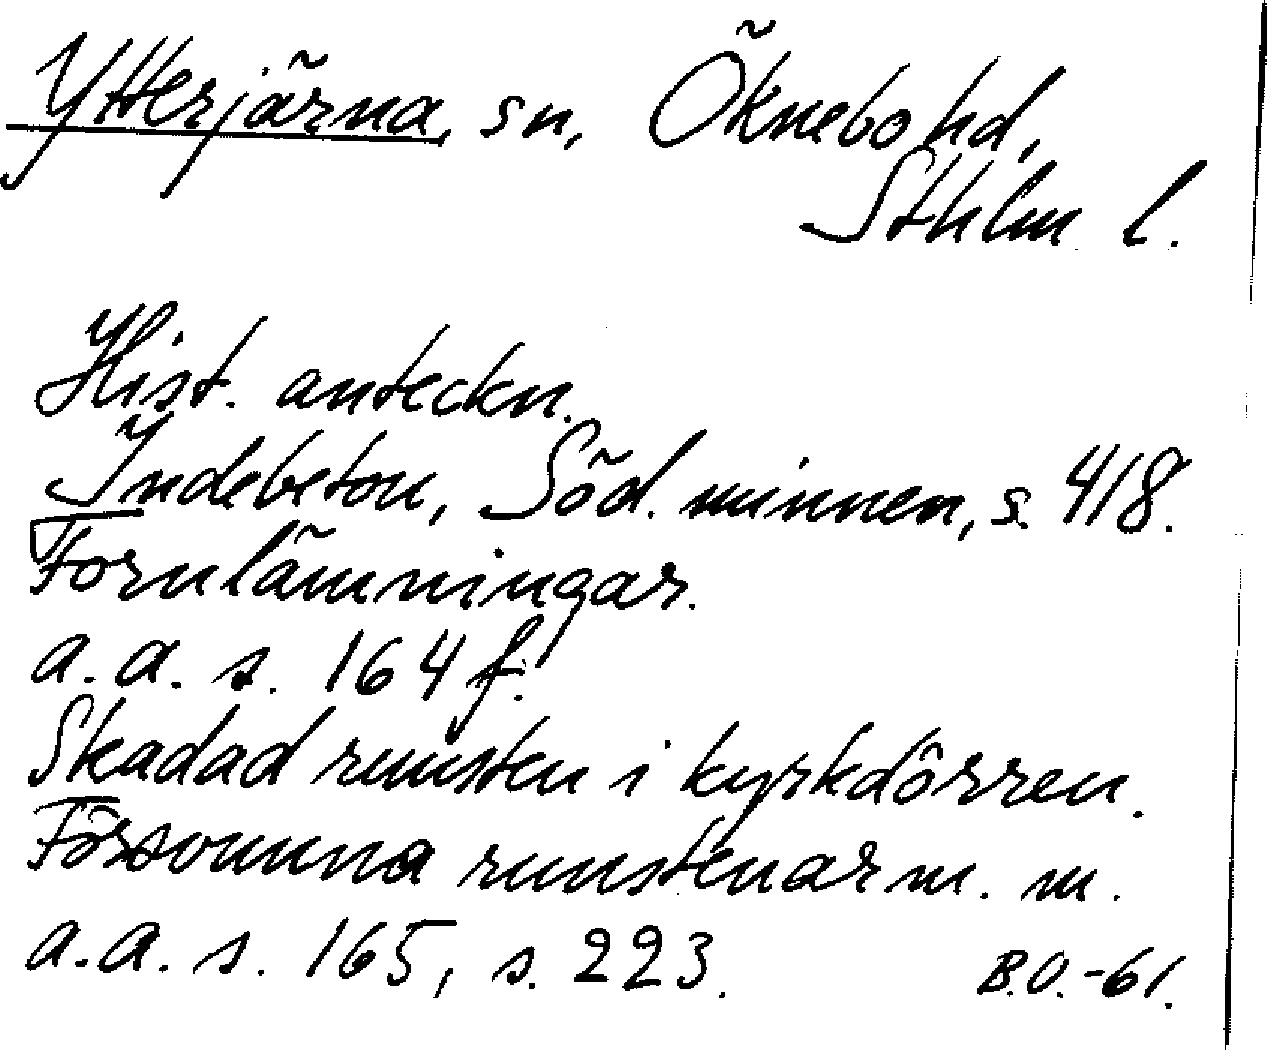 Ytterjärna, sn, Öknebo hd,
Sthlm l.
Hist. anteckn.
Indebetou, Söd. minnen, s. 418.
Fornlämningar.
a.a. s. 164 f.
Skadad runsten i kyrkdörren.
Försvunna runstenar m. m.
a.a. s. 165, s. 223.
B.O.-61.